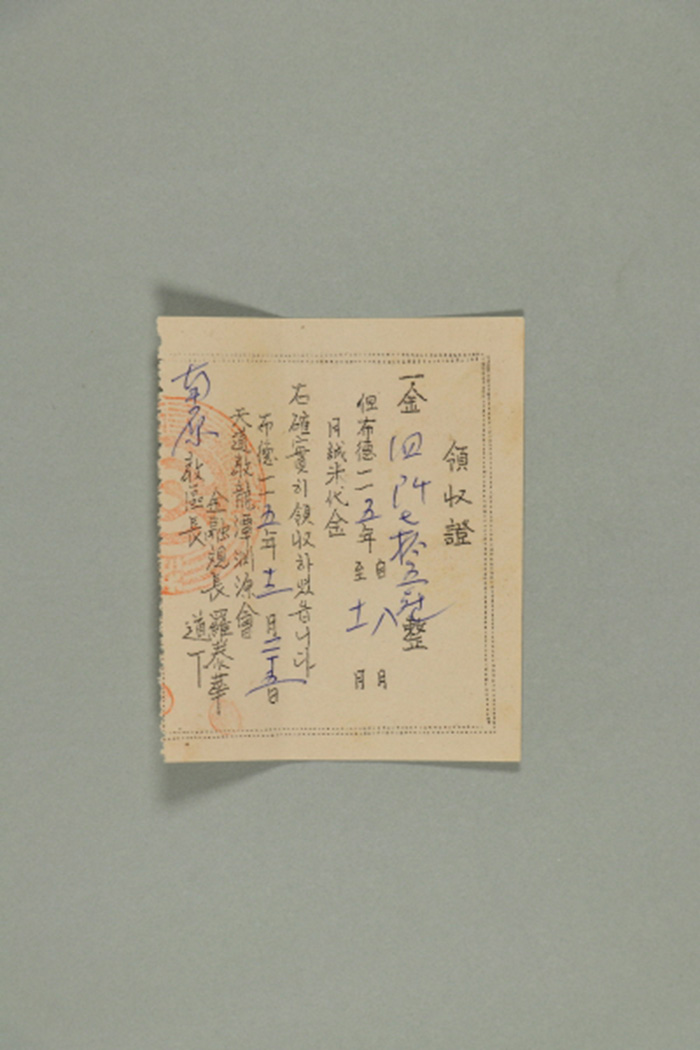 領収證
一金 四阡七拾五원整
但布德一一五年 自八月
至十一月
月誠米代金
右確實히領収하였습니다
布德一一五年十二月二十五日
天道敎龍潭淵源會
金融觀長 羅泰華
南原敎區長 道丁